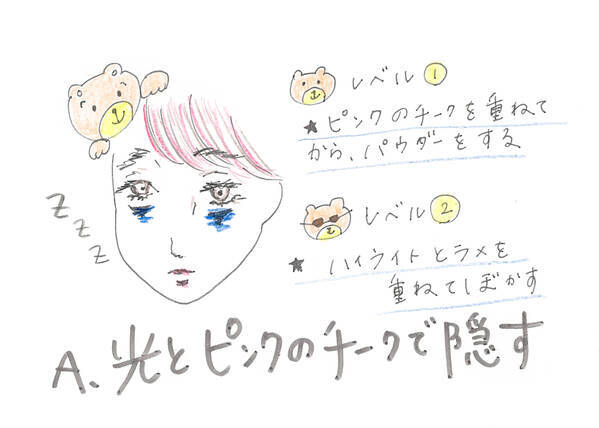 レベル 1
★ピンクのチークを重ねて
から、パウダーをする
レベル 2
★ハイライトとラメを
重ねてぼかす
z
z
z
A、光とピンクのチークで隠す